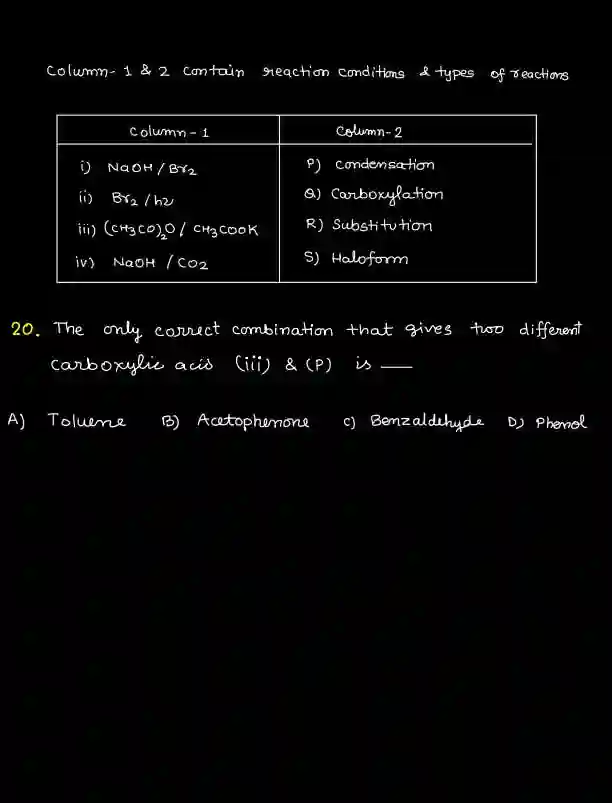 Column- 1 & 2 contain reaction conditions & types of reactions
Column - 1
Column-2
i) NaOH / Br2
P) Condensation
ii) Br2 / hν
Q) Carboxylation
iii) (CH3CO)2O / CH3COOK
R) Substitution
iv) NaOH / CO2
S) Haloform
20. The only correct combination that gives two different
carboxylic acid (iii) & (P) is —
A) Toluene B) Acetophenone C) Benzaldehyde D) Phenol